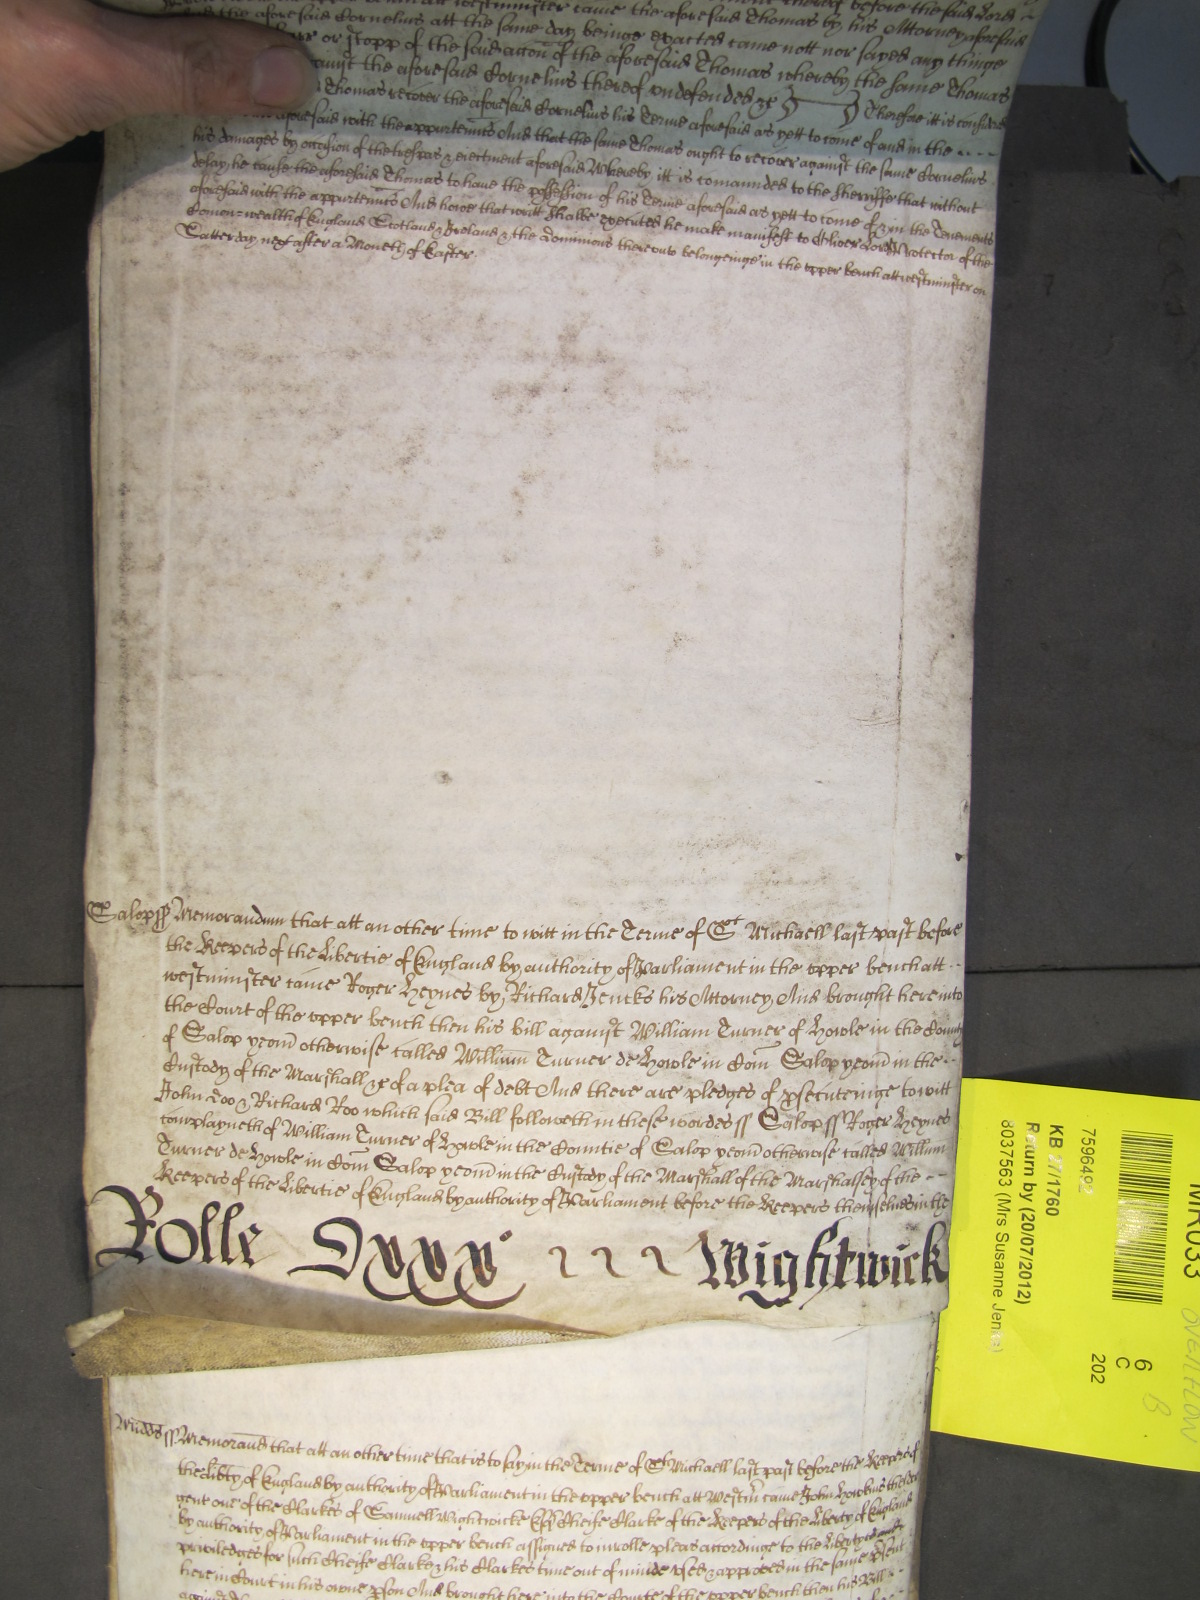 before the said Lord
Westminster came the aforesaid Thomas by his Attorney aforesaid
the aforesaid Cornelius att the same day beinge exacted came nott nor sayed any thinge
or stopp of the said accon of the aforesaid Thomas whereby the same Thomas
the aforesaid Cornelius thereof undefended &c Therefore itt is considered
Thomas recover the aforesaid Cornelius his Terme aforesaid as yett to come of and in the
aforesaid with the appurtenncs And that the same Thomas ought to recover against the same Cornelius
his damages by occasion of the trespas & eiectment aforesaid Whereby itt is comaunded to the Sherriffe that without
delay he cause the aforesaid Thomas to have the possession of his Terme aforesaid as yett to come of & in the Tenements
aforesaid with the appurtenncs And howe that writt shalbe executed he make manifest to Oliver Lord Protector of the
Comonwealth of England Scotland & Ireland & the dominions thereunto belonginge in the upper bench att Westminster on
Satterday next after a Moneth of Easter.
Salop ss Memorandum that att an other time to witt in the Terme of St Michaell last past before
the Keepers of the Libertie of England by authority of Parliament in the upper bench att
Westminster came Roger Heynes by Richard Jencks his Attorney And brought here into
the Court of the upper bench then his bill against William Turner of Howle in the County
of Salop yeom otherwise called William Turner de Howle in Com Salop yeom in the
Custody of the Marshall &c of a plea of debt And there are pledges of psecuteinge to witt
John Doo & Richard Roo which said Bill followeth in these wordes ss Salop ss Roger Heynes
complayneth of William Turner of Howle in the Countie of Salop yeom otherwise called William
Turner de Howle in Com Salop yeom in the Custody of the Marshall of the Marshalsey of the
Keepers of the Libertie of England by authority of Parliament before the Keepers themselves in the
Rolle Dxxx Wightwick
Midds ss Memorand that att an other time that is to say in the Terme of St Michaell last past before the Keepers of
the libty of England by authority of Parliament in the upper bench att Westm came John
gent one of the Clarkes of Samuell Wightwicke Esq Cheife Clarke of the Keepers of the Liberty of England
by authority of Parliament in the upper bench assigned to inrolle pleas accordinge to the Liberty
priviledges for such Cheife Clarke & his Clarkes time out of minde used & approved in the same psent
here in Court in his owne pson And brought here into the Courte of the upper bench then his Bill
MR033
OVERFLOW
B
6
C
202
7596492
KB 27/1760
Return by (20/07/2012)
8037563 (Mrs Susanne Jen